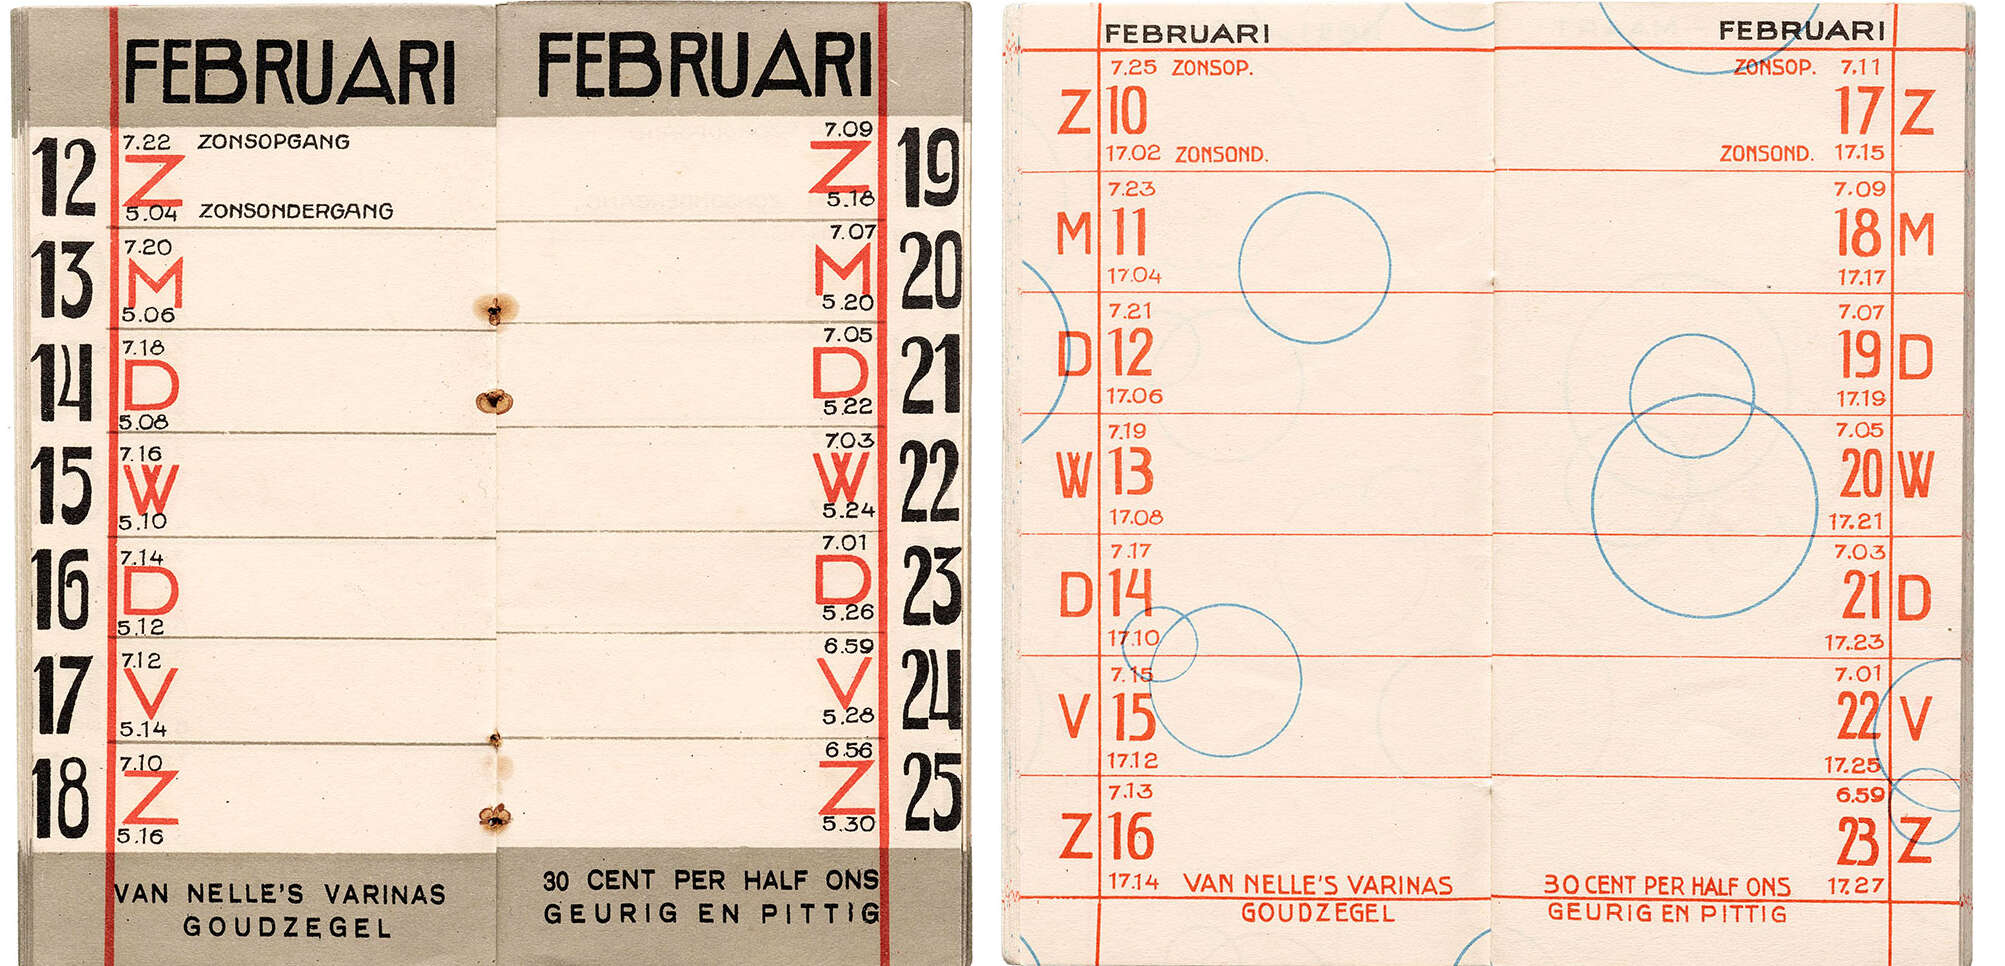 FEBRUARI
12
7.22 ZONSOPGANG
Z
5.04 ZONSONDERGANG
13
7.20
M
5.06
14
7.18
D
5.08
15
7.16
W
5.10
16
7.14
D
5.12
17
7.12
V
5.14
18
7.10
Z
5.16
VAN NELLE'S VARINAS
GOUDZEGEL
FEBRUARI
7.09
Z 19
5.18
7.07
M 20
5.20
7.05
D 21
5.22
7.03
W 22
5.24
7.01
D 23
5.26
6.59
V 24
5.28
6.56
Z 25
5.30
30 CENT PER HALF ONS
GEURIG EN PITTIG
FEBRUARI
7.25 ZONSOP.
Z 10
17.02 ZONSOND.
7.23
M 11
17.04
7.21
D 12
17.06
7.19
W 13
17.08
7.17
D 14
17.10
7.15
V 15
17.12
7.13
Z 16
17.14 VAN NELLE'S VARINAS
GOUDZEGEL
FEBRUARI
ZONSOP. 7.11
17 Z
ZONSOND. 17.15
7.09
18 M
17.17
7.07
19 D
17.19
7.05
20 W
17.21
7.03
21 D
17.23
7.01
22 V
17.25
6.59
23 Z
30 CENT PER HALF ONS 17.27
GEURIG EN PITTIG